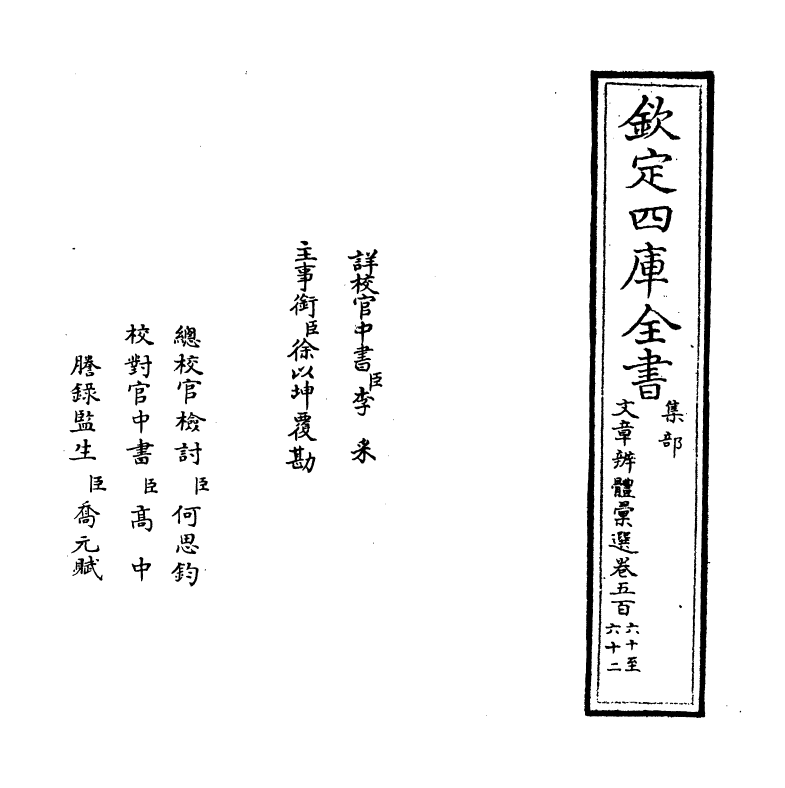 欽定四庫全書
集部
文章辨體彙選卷五百
六十至
六十二
詳校官中書臣李采
主事銜臣徐以坤覆勘
總校官檢討臣何思鈞
校對官中書臣高中
謄錄監生臣喬元賦